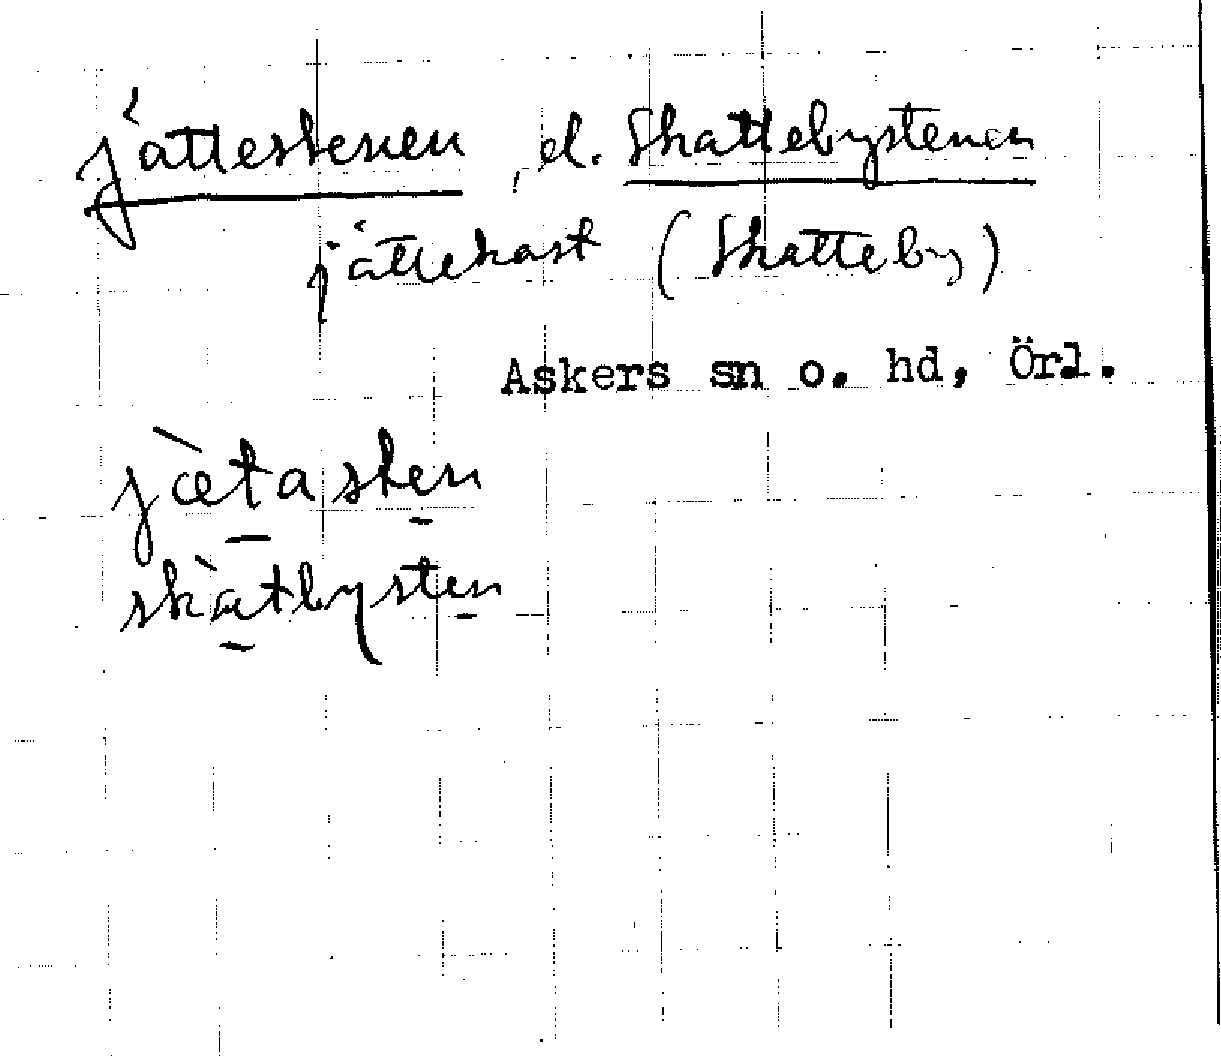 jättestenen, el. Skattebystenen
jättekast (Skatteby)
Askers sn o. hd, Örl.
jæ̀tasten
skàtbysten